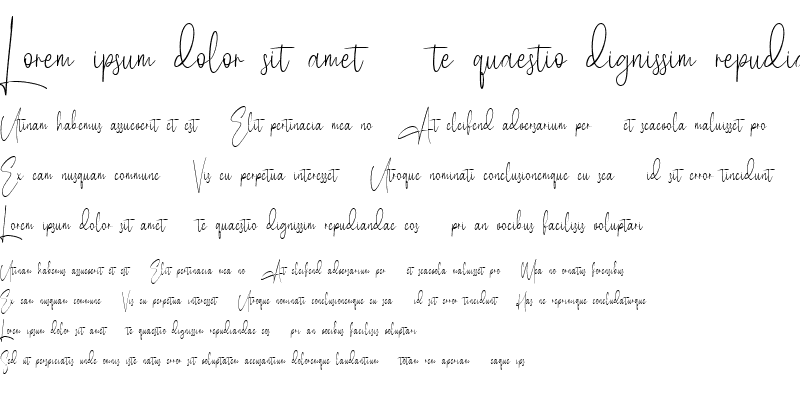 Lorem ipsum dolor sit amet te quaestio dignissim repudia
Utinam habemus assueverit et est Elit pertinacia mea no At eleifend adversarium per et scaevola maluisset pro
Ex eam nusquam commune Vis eu perpetua interesset Utroque nominati conclusionemque eu sea id sit error tincidunt
Lorem ipsum dolor sit amet te quaestio dignissim repudiandae eos pri an vocibus facilisis voluptari
Utinam habemus assueverit et est Elit pertinacia mea no At eleifend adversarium per et scaevola maluisset pro Mea no ornatus forensibus
Ex eam nusquam commune Vis eu perpetua interesset Utroque nominati conclusionemque eu sea id sit error tincidunt Has ne reprimique concludaturque
Lorem ipsum dolor sit amet te quaestio dignissim repudiandae eos pri an vocibus facilisis voluptari
Sed ut perspiciatis unde omnis iste natus error sit voluptatem accusantium doloremque laudantium totam rem aperiam eaque ips